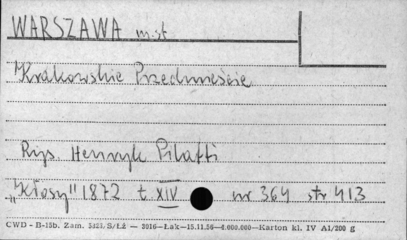 WARSZAWA m.st.
Krakowskie Przedmieście
Rys. Henryk Pilatti
"Kłosy" 1872 t. XIV nr 364 str 413
CWD - B-15b. Zam. 5323/S/Łż — 3016—Łak—15.11.56—4.000.000—Karton kl. IV A1/200 g